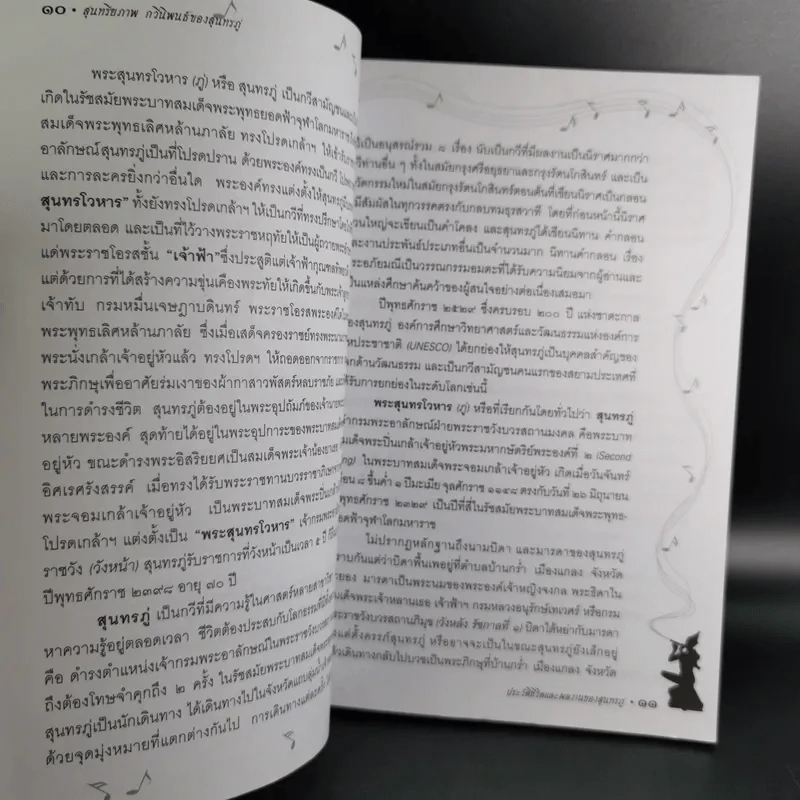 ๑๐ • สุนทรียภาพ กวีนิพนธ์ของสุนทรภู่
พระสุนทรโวหาร (ภู่) หรือ สุนทรภู่ เป็นกวีสามัญชน
เกิดในรัชสมัยพระบาทสมเด็จพระพุทธยอดฟ้าจุฬาโลกมหาราช
สมเด็จพระพุทธเลิศหล้านภาลัย ทรงโปรดเกล้าฯ ให้เข้า
อาลักษณ์สุนทรภู่เป็นที่โปรดปราน ด้วยพระองค์ทรงเป็นกวี
และการละครยิ่งกว่าอื่นใด พระองค์ทรงแต่งตั้งให้สุนทรภู่
สุนทรโวหาร” ทั้งยังทรงโปรดเกล้าฯ ให้เป็นกวีที่ทรงปรึกษา
มาโดยตลอด และเป็นที่ไว้วางพระราชหฤทัยให้เป็นผู้ถวาย
แด่พระราชโอรสชั้น “เจ้าฟ้า” ซึ่งประสูติแต่เจ้าฟ้ากุณฑลทิพยวดี
แต่ด้วยการที่ได้สร้างความขุ่นเคืองพระทัยให้เกิดขึ้นกับ
เจ้าทับ กรมหมื่นเจษฎาบดินทร์ พระราชโอรสพระองค์
พระพุทธเลิศหล้านภาลัย ซึ่งเมื่อเสด็จครองราชย์
พระนั่งเกล้าเจ้าอยู่หัวแล้ว ทรงโปรดฯ ให้ถอดออกจาก
พระภิกษุเพื่ออาศัยร่มเงาของผ้ากาสาวพัสตร์หลบราชภัย
ในการดำรงชีวิต สุนทรภู่ต้องอยู่ในพระอุปถัมภ์ของเจ้านาย
หลายพระองค์ สุดท้ายได้อยู่ในพระอุปการะของพระบาทสมเด็จ
อยู่หัว ขณะดำรงพระอิสริยยศเป็นสมเด็จพระเจ้าน้องยาเธอ
อิศเรศรังสรรค์ เมื่อทรงได้รับพระราชทานบวรราชาภิเษก
พระจอมเกล้าเจ้าอยู่หัว เป็นพระบาทสมเด็จพระปิ่นเกล้า
โปรดเกล้าฯ แต่งตั้งเป็น “พระสุนทรโวหาร” เจ้ากรม
ราชวัง (วังหน้า) สุนทรภู่รับราชการที่วังหน้าเป็นเวลา ๕ ปี
ปีพุทธศักราช ๒๓๙๘ อายุ ๗๐ ปี
สุนทรภู่ เป็นกวีที่มีความรู้ในศาสตร์หลายสาขา
หาความรู้อยู่ตลอดเวลา ชีวิตต้องประสบกับโลกธรรม
คือ ดำรงตำแหน่งเจ้ากรมพระอาลักษณ์ในพระราชวังบวร
ถึงต้องโทษจำคุกถึง ๒ ครั้ง ในรัชสมัยพระบาทสมเด็จ
สุนทรภู่เป็นนักเดินทาง ได้เดินทางไปในจังหวัดแถบลุ่มน้ำ
ด้วยจุดมุ่งหมายที่แตกต่างกันไป การเดินทางแต่ละครั้ง
เป็นอนุสรณ์รวม ๘ เรื่อง นับเป็นกวีที่มีผลงานเป็นนิราศมากกว่า
ท่านอื่น ๆ ทั้งในสมัยกรุงศรีอยุธยาและกรุงรัตนโกสินทร์ และเป็น
วัตกรรมใหม่ในสมัยกรุงรัตนโกสินทร์ตอนต้นที่เขียนนิราศเป็นกลอน
มีสัมผัสในทุกวรรคตรงกับกลบทมธุรสวาที โดยที่ก่อนหน้านี้นิราศ
วนใหญ่จะเขียนเป็นคำโคลง และสุนทรภู่ได้เขียนนิทาน คำกลอน
ละงานประพันธ์ประเภทอื่นเป็นจำนวนมาก นิทานคำกลอน เรื่อง
ระอภัยมณีเป็นวรรณกรรมอมตะที่ได้รับความนิยมจากผู้อ่านและ
เป็นแหล่งศึกษาค้นคว้าของผู้สนใจอย่างต่อเนื่องเสมอมา
ปีพุทธศักราช ๒๕๒๙ ซึ่งครบรอบ ๒๐๐ ปี แห่งชาตะกาล
องสุนทรภู่ องค์การศึกษาวิทยาศาสตร์และวัฒนธรรมแห่งองค์การ
หประชาชาติ (UNESCO) ได้ยกย่องให้สุนทรภู่เป็นบุคคลสำคัญของ
กด้านวัฒนธรรม และเป็นกวีสามัญชนคนแรกของสยามประเทศที่
ด้รับการยกย่องในระดับโลกเช่นนี้
พระสุนทรโวหาร (ภู่) หรือที่เรียกกันโดยทั่วไปว่า สุนทรภู่
จ้ากรมพระอาลักษณ์ฝ่ายพระราชวังบวรสถานมงคล คือพระบาท
มเด็จพระปิ่นเกล้าเจ้าอยู่หัวพระมหากษัตริย์พระองค์ที่ ๒ (Second
ng) ในพระบาทสมเด็จพระจอมเกล้าเจ้าอยู่หัว เกิดเมื่อวันจันทร์
อน ๘ ขึ้นค่ำ ๑ ปีมะเมีย จุลศักราช ๑๑๔๘ ตรงกับวันที่ ๒๖ มิถุนายน
พุทธศักราช ๒๓๒๙ เป็นปีที่สี่ในรัชสมัยพระบาทสมเด็จพระพุทธ-
อดฟ้าจุฬาโลกมหาราช
ไม่ปรากฏหลักฐานถึงนามบิดา และมารดาของสุนทรภู่
ราบกันแต่ว่าบิดาพื้นเพอยู่ที่ตำบลบ้านกร่ำ เมืองแกลง จังหวัด
ยอง มารดาเป็นพระนมของพระองค์เจ้าหญิงจงกล พระธิดาใน
ด็จพระเจ้าหลานเธอ เจ้าฟ้า กรมหลวงอนุรักษ์เทเวศร์ หรือกรม
ระราชวังบวรสถานภิมุข (วังหลัง รัชกาลที่ ๑) บิดาได้หย่ากับมารดา
แต่ตั้งครรภ์สุนทรภู่ หรืออาจจะเป็นในขณะสุนทรภู่ยังเล็กอยู่
ล้วเดินทางกลับไปบวชเป็นพระภิกษุที่บ้านกร่ำ เมืองแกลง จังหวัด
ประวัติชีวิตและผลงานของสุนทรภู่ • ๑๑